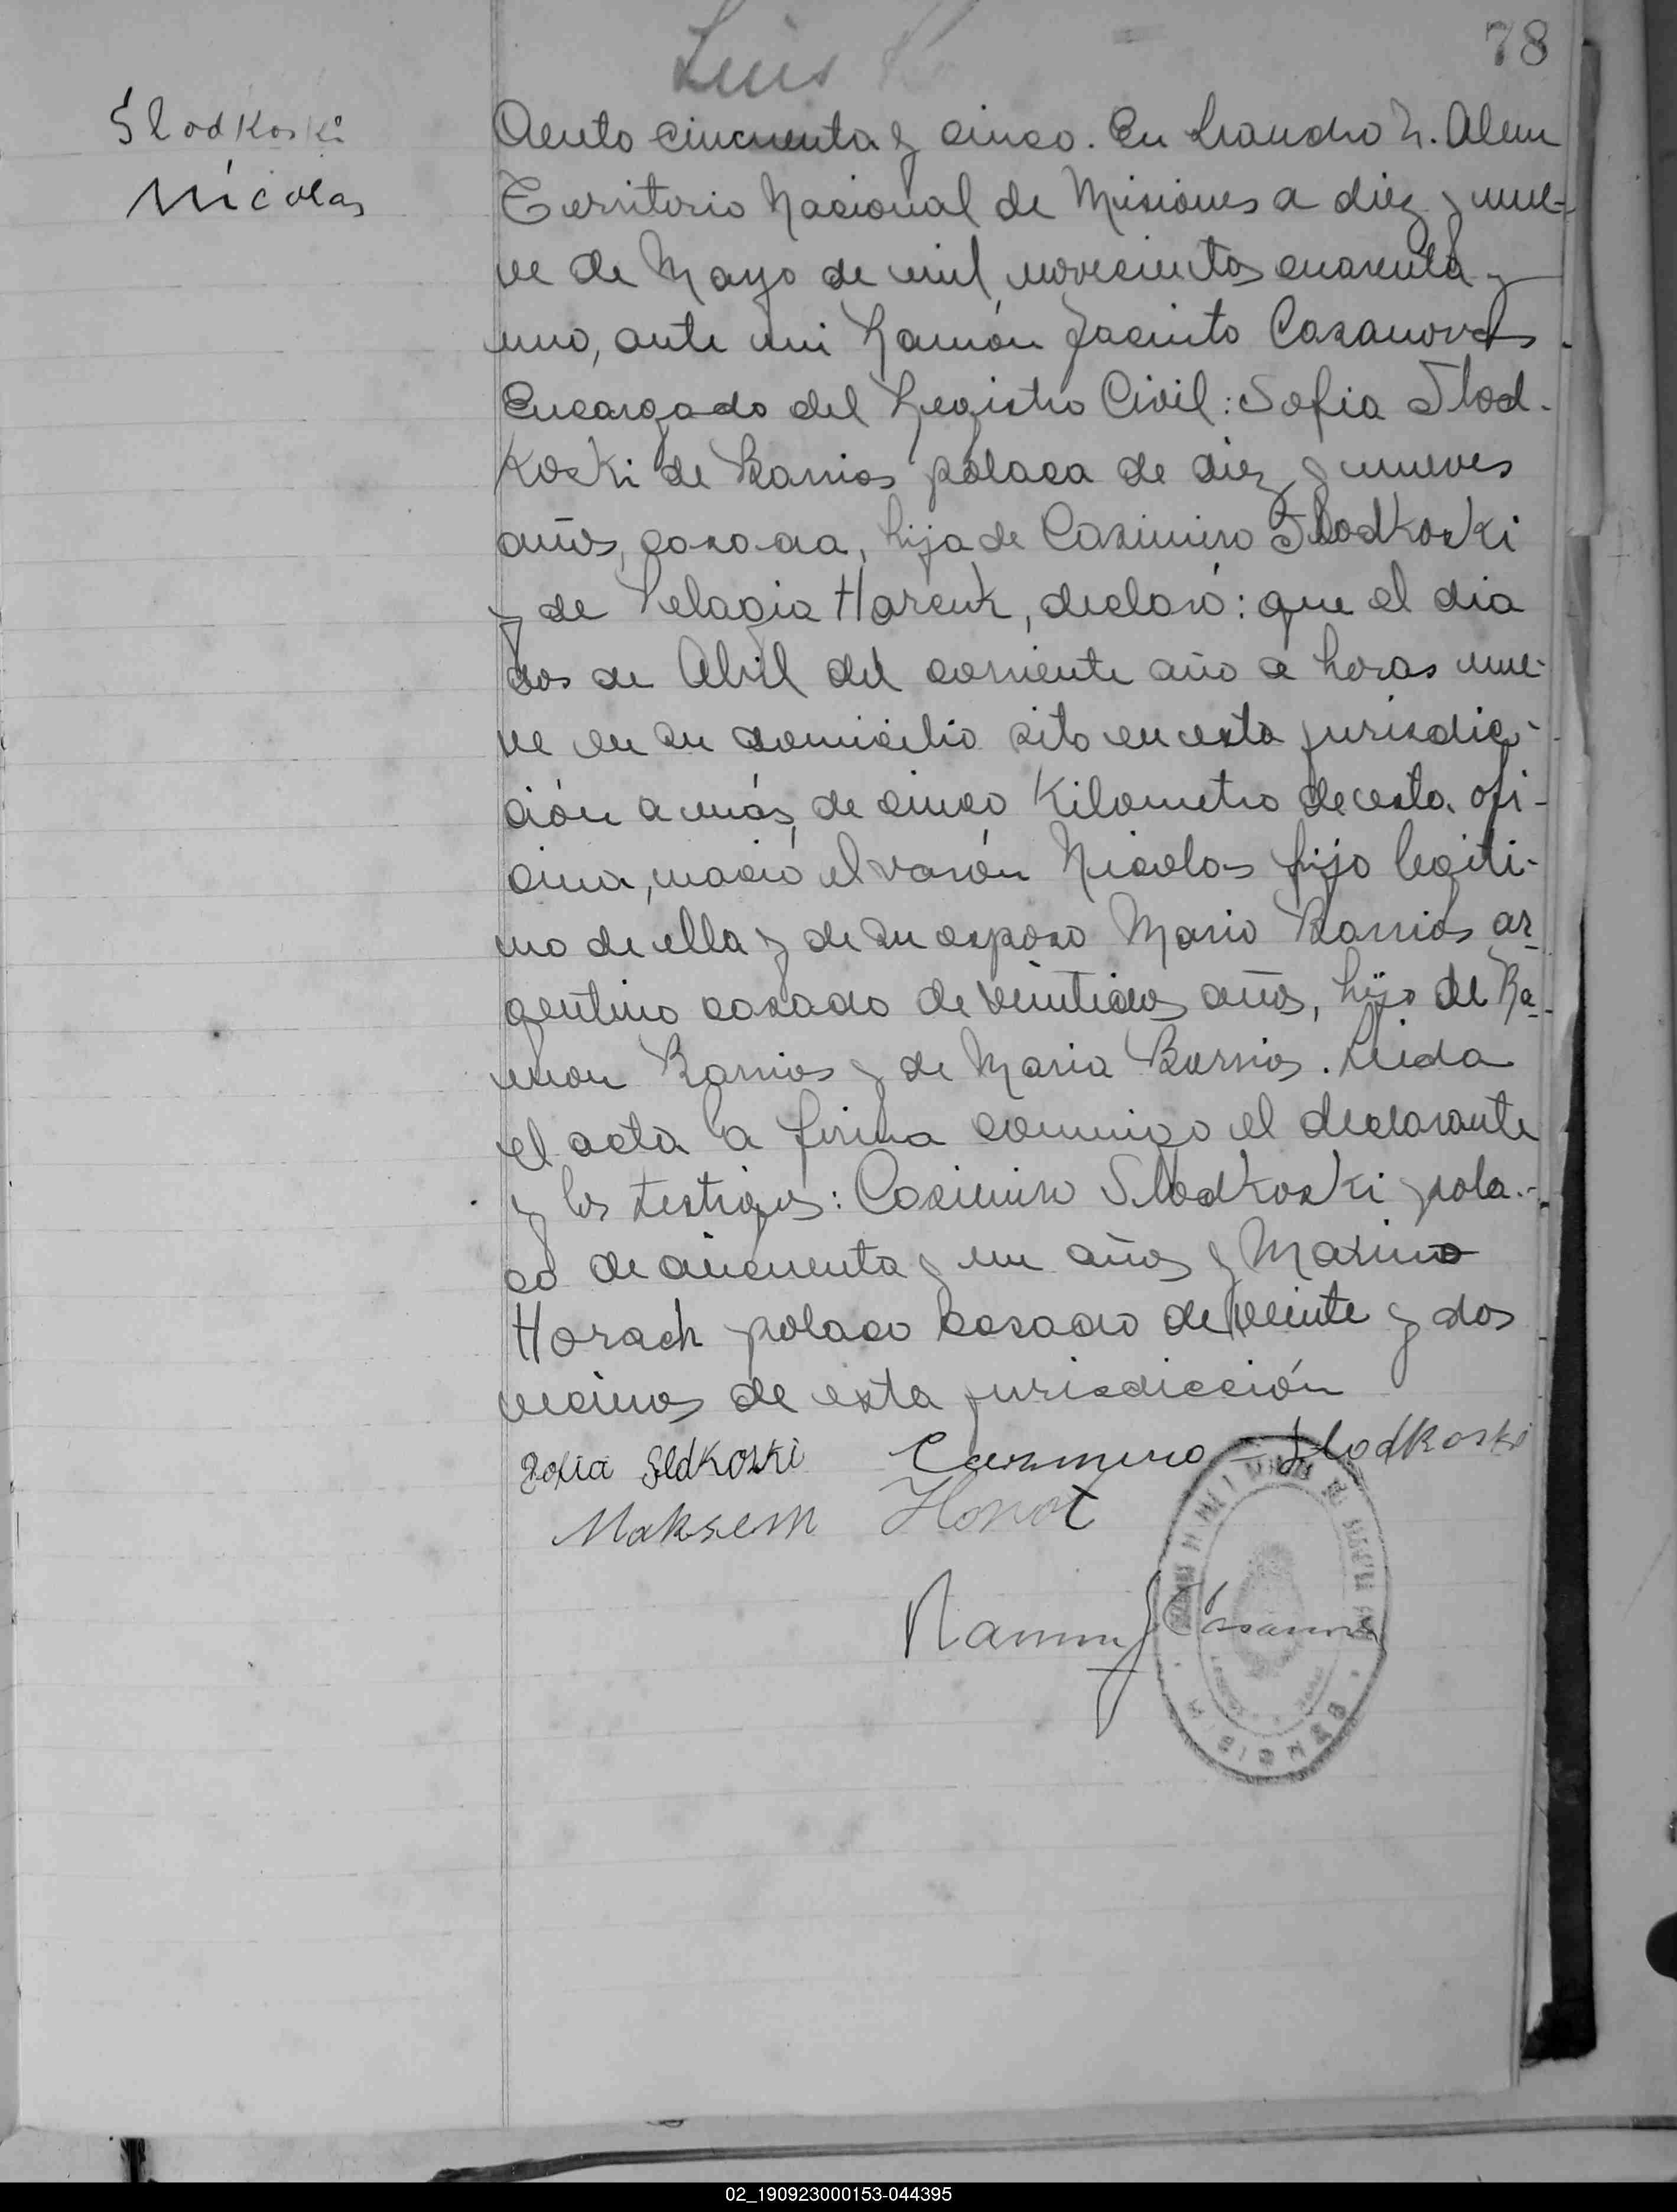 78
Luis
Slodkoski
Nicolas
Ciento cincuenta y cinco. En Leandro N. Alem
Territorio Nacional de Misiones a diez y nue-
ve de Mayo de mil novecientos cuarenta y
uno, ante mi Ramón Jacinto Casanovas
Encargado del Registro Civil: Sofia Slod-
koski de Barrios polaca de diez y nueves
años, casada, hija de Casimiro Slodkoski
y de Pelagia Harcuk, declaró: que el dia
dos de Abril del corriente año a horas nue-
ve en su domicilio sito en esta jurisdic-
ción a más de cinco Kilometro de esta ofi-
cina, nació el varón Nicolas hijo legiti-
mo de ella y de su esposo Mario Barrios ar-
gentino casado de veintidos años, hijo de Ra-
mon Barrios y de Maria Barrios. Leida
el acta la firma conmigo el declarante
y los testigos: Casimiro Slodkoski pola-
co de cincuenta y un años y Maximo
Horach polaco casado de veinte y dos
vecinos de esta jurisdicción
Sofia Sldkoski Casimiro Slodkoski
Maksem
Ramon J Casanova
02_190923000153-044395